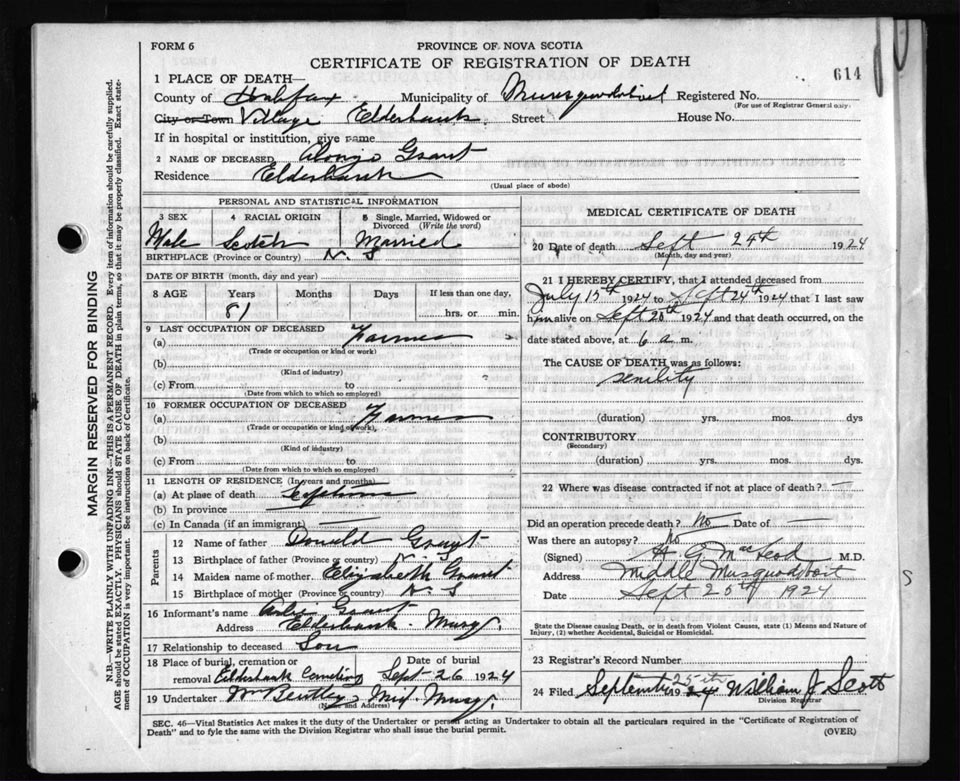 FORM 6
PROVINCE OF NOVA SCOTIA
CERTIFICATE OF REGISTRATION OF DEATH
614
1 PLACE OF DEATH—
County of Halifax Municipality of Musquodoboit Registered No.
(For use of Registrar General only)
City or Town Village Elderbank Street House No.
If in hospital or institution, give name
2 NAME OF DECEASED Alonzo Grant
Residence Elderbank
(Usual place of abode)
PERSONAL AND STATISTICAL INFORMATION
3 SEX 4 RACIAL ORIGIN 5 Single, Married, Widowed or Divorced (Write the word)
Male Scotch Married
BIRTHPLACE (Province or Country) N. S
DATE OF BIRTH (month, day and year)
8 AGE Years Months Days If less than one day,
81 hrs. or min.
9 LAST OCCUPATION OF DECEASED
(a) Farmer
(Trade or occupation or kind or work)
(b)
(Kind of industry)
(c) From to
(Date from which to which so employed)
10 FORMER OCCUPATION OF DECEASED
(a) Farmer
(Trade or occupation or kind of work)
(b)
(Kind of industry)
(c) From to
(Date from which to which so employed)
11 LENGTH OF RESIDENCE (In years and months)
(a) At place of death Lifetime
(b) In province
(c) In Canada (if an immigrant)
Parents
12 Name of father Donald Grant
13 Birthplace of father (Province or country) N. S
14 Maiden name of mother Elizabeth Grant
15 Birthplace of mother (Province or country) N. S
16 Informant's name Grant
Address Elderbank. Musq.
17 Relationship to deceased Son
18 Place of burial, cremation or removal Elderbank Cemetery Date of burial Sept 26 1924
19 Undertaker Wm Bentley Mid. Musq.
(Name and Address)
MEDICAL CERTIFICATE OF DEATH
20 Date of death Sept 24th 1924
(Month, day and year)
21 I HEREBY CERTIFY, that I attended deceased from
July 15th 1924 to Sept 24th 1924 that I last saw
him alive on Sept 20th 1924 and that death occurred, on the
date stated above, at 6 a m.
The CAUSE OF DEATH was as follows:
senility
(duration) yrs. mos. dys
CONTRIBUTORY
(Secondary)
(duration) yrs. mos. dys.
22 Where was disease contracted if not at place of death? —
Did an operation precede death? No Date of —
Was there an autopsy? No
(Signed) A G MacLeod M.D.
Address Middle Musquodoboit
Date Sept 25th 1924
State the Disease causing Death, or in death from Violent Causes, state (1) Means and Nature of
Injury, (2) whether Accidental, Suicidal or Homicidal.
23 Registrar's Record Number
24 Filed September 25th 1924 William J Scott
Division Registrar
SEC. 46—Vital Statistics Act makes it the duty of the Undertaker or person acting as Undertaker to obtain all the particulars required in the "Certificate of Registration of
Death" and to fyle the same with the Division Registrar who shall issue the burial permit.
(OVER)
MARGIN RESERVED FOR BINDING
N.B.—WRITE PLAINLY WITH UNFADING INK—THIS IS A PERMANENT RECORD. Every item of information should be carefully supplied.
AGE should be stated EXACTLY. PHYSICIANS should STATE CAUSE OF DEATH in plain terms, so that it may be properly classified. Exact state-
ment of OCCUPATION is very important. See instructions on back of Certificate.